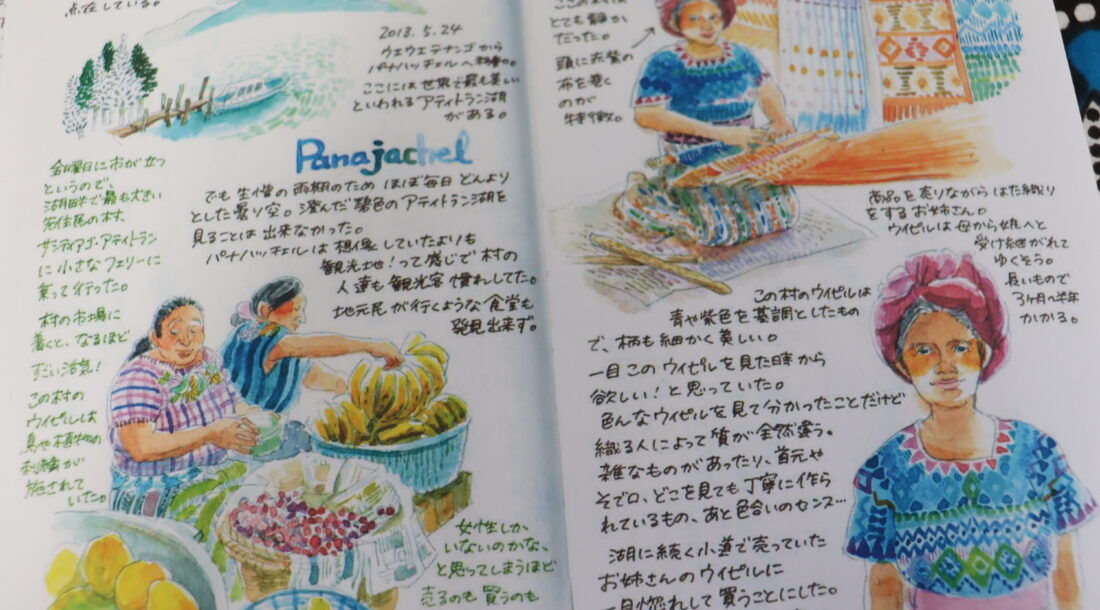 点在している。
2013.5.24
ウエウエテナンゴから
パナハッチェルへ移動。
ここには世界で最も美しい
といわれるアティトラン湖
がある。
Panajachel
でも生憎の雨期のため ほぼ毎日どんより
とした曇り空。澄んだ碧色のアティトラン湖を
見ることは出来なかった。
パナハッチェルは想像していたよりも
観光地!って感じで村の
人達も観光客慣れしてた。
地元民が行くような食堂も
発見出来ず。
金曜日に市が立つ
というので、
湖畔で最も大きい
先住民の村、
サンティアゴ・アティトラン
に小さなフェリーに
乗って行った。
村の市場に
着くと、なるほど
すごい活気!
この村の
ウイピルは
鳥や植物の
刺繍が
施されて
いた。
女性しか
いないのかな、
と思ってしまうほど
売るのも買うのも
ここの村は
とても静か
だった。
頭に赤紫の
布を巻く
のが
特徴。
商品を売りながらはた織り
をするお姉さん。
ウイピルは母から娘へと
受け継がれて
ゆくそう。
長いもので
3ヶ月〜半年
かかる。
この村のウイピルは
青や紫色を基調としたもの
で、柄も細かく美しい。
一目このウイピルを見た時から
欲しい!と思っていた。
色んなウイピルを見て分かったことだけど
織る人によって質が全然違う。
雑なものがあったり、首元や
そで口、どこを見ても丁寧に作ら
れているもの、あと色合いのセンス…
湖に続く小道で売っていた
お姉さんのウイピルに
一目惚れして買うことにした。